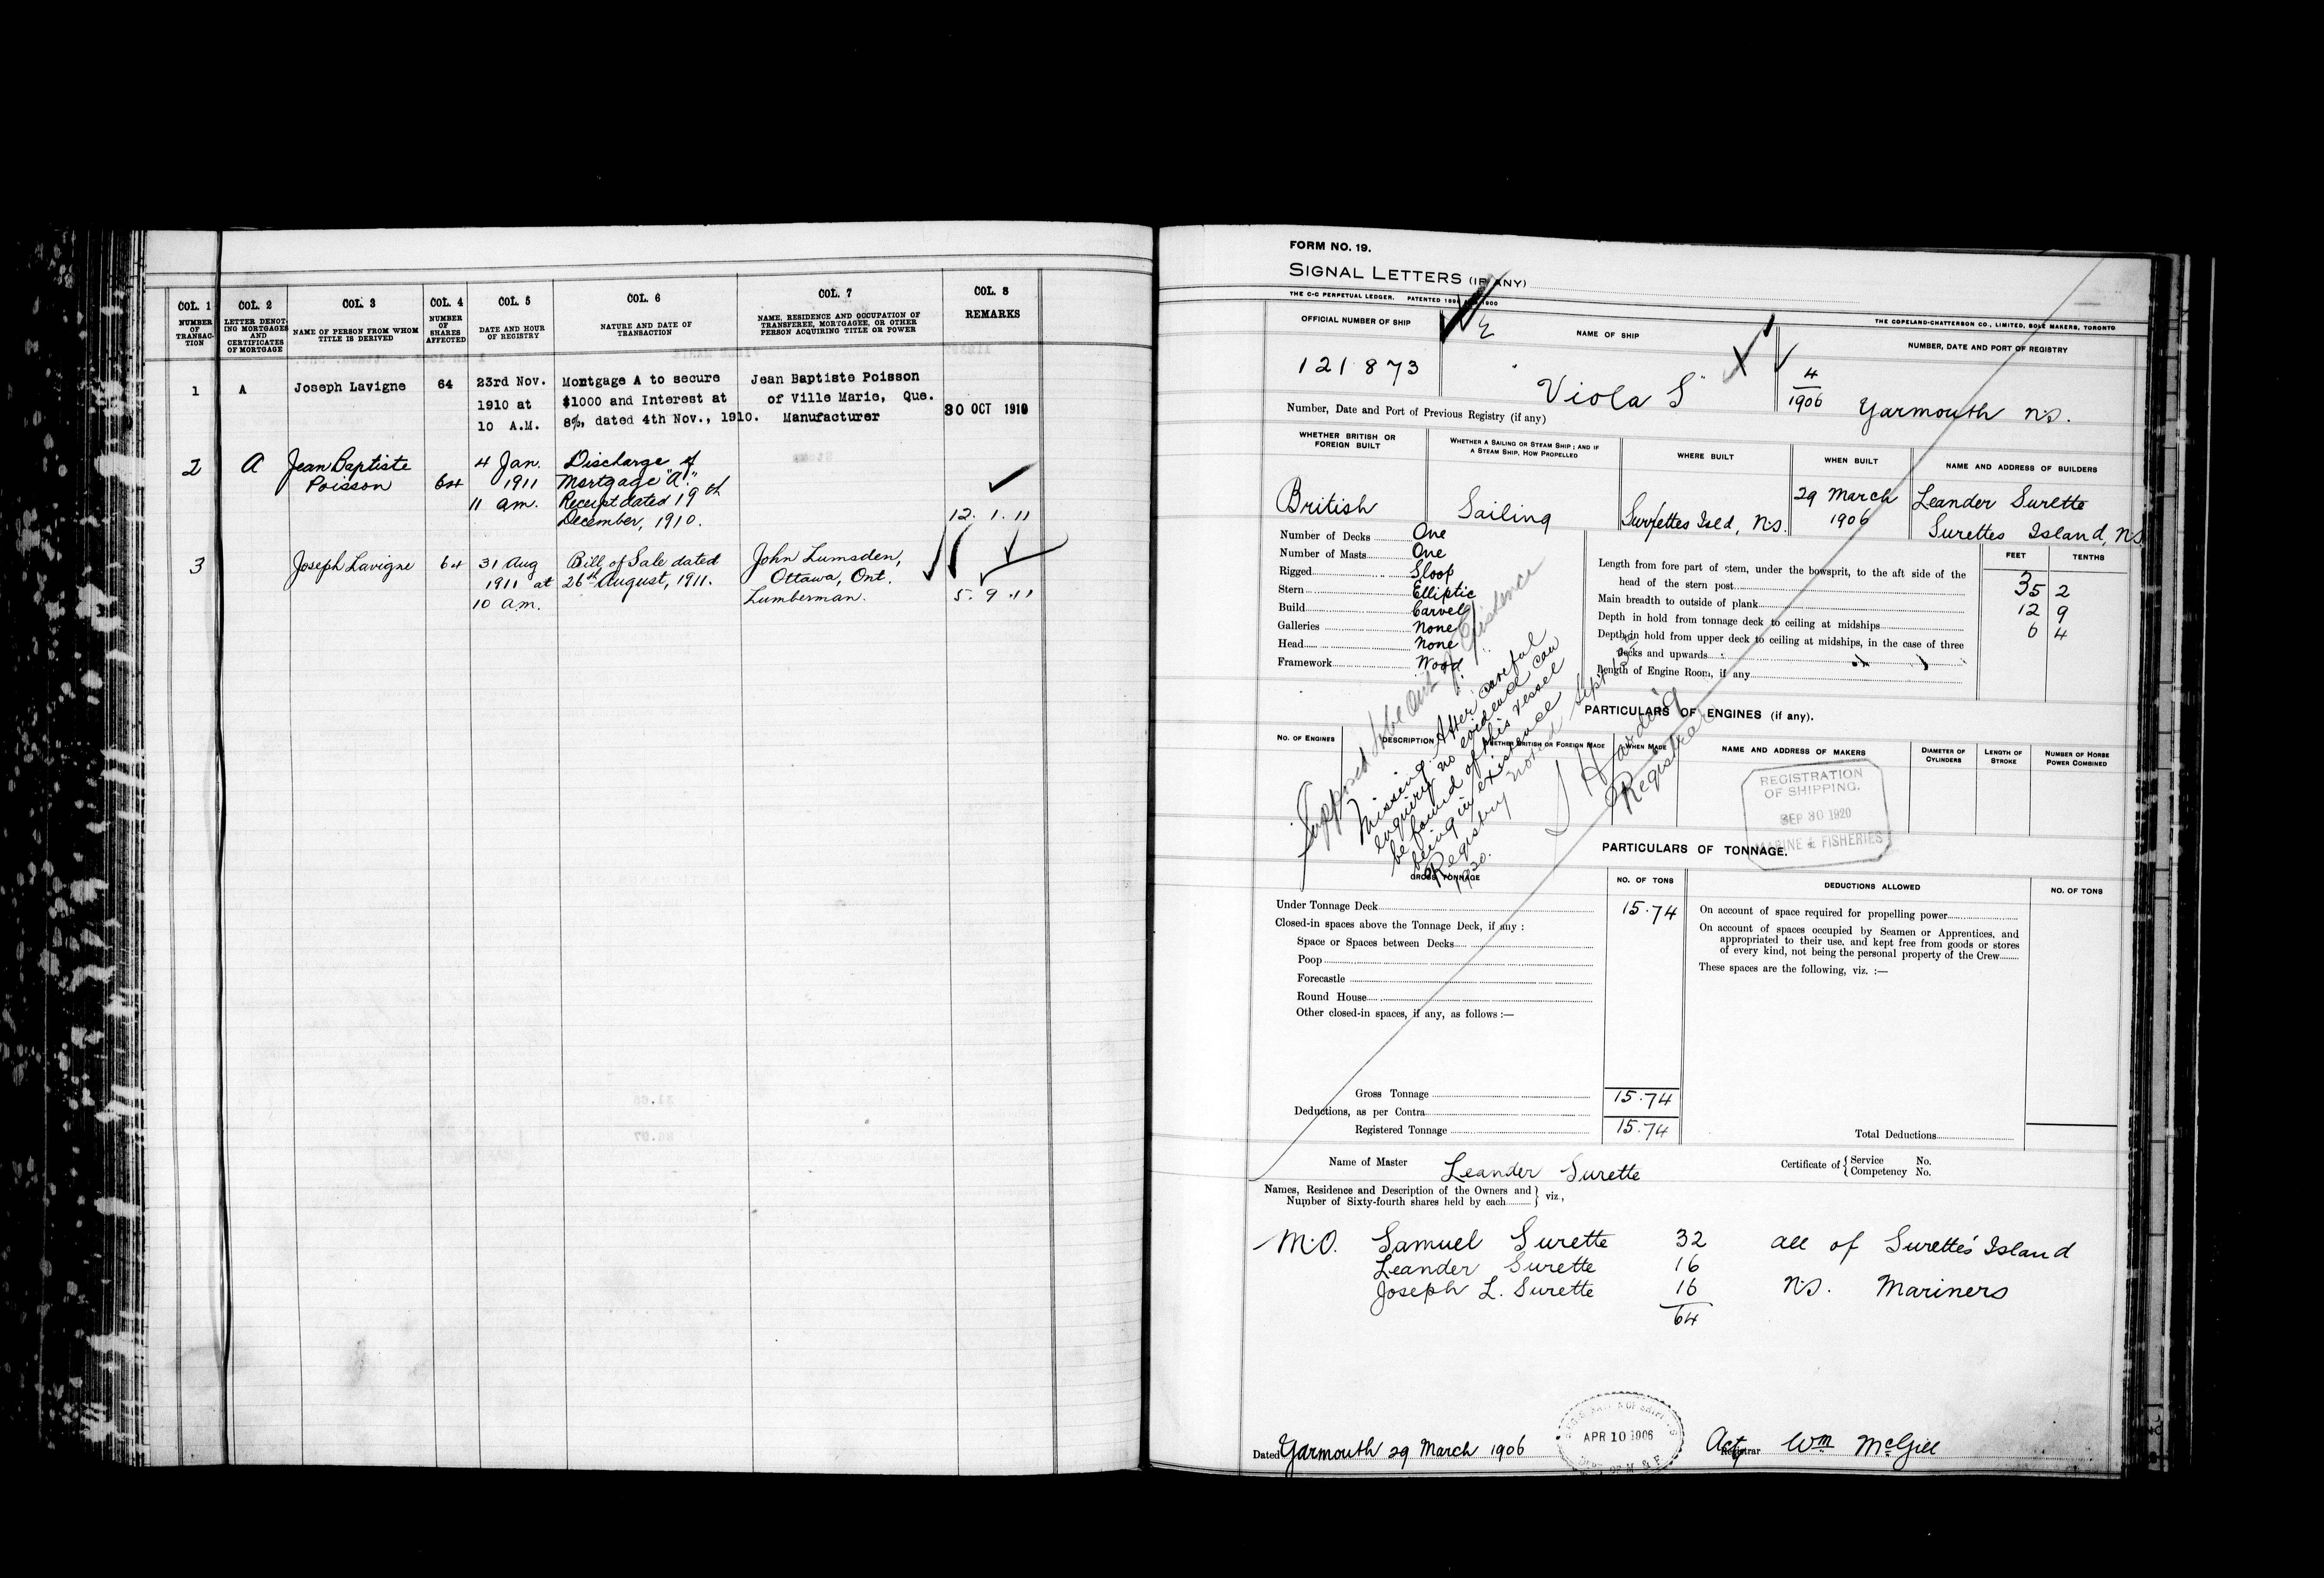 COL. 1 COL. 2 COL. 3 COL. 4 COL. 5 COL. 6 COL. 7 COL. 8
NUMBER OF TRANSACTION
LETTER DENOTING MORTGAGES AND CERTIFICATES OF MORTGAGE
NAME OF PERSON FROM WHOM TITLE IS DERIVED
NUMBER OF SHARES AFFECTED
DATE AND HOUR OF REGISTRY
NATURE AND DATE OF TRANSACTION
NAME, RESIDENCE AND OCCUPATION OF TRANSFEREE, MORTGAGEE, OR OTHER PERSON ACQUIRING TITLE OR POWER
REMARKS
1 A Joseph Lavigne 64 23rd Nov. Mortgage A to secure Jean Baptiste Poisson
1910 at $1000 and Interest at of Ville Marie, Que. 30 OCT 1910
10 A.M. 8%, dated 4th Nov., 1910. Manufacturer
2 A Jean Baptiste 4 Jan. Discharge of
Poisson 64 1911 Mortgage "A".
11 am. Receipt dated 19th
December, 1910. 12. 1. 11
3 Joseph Lavigne 64 31 Aug Bill of Sale dated John Lumsden,
1911 at 26th August, 1911. Ottawa, Ont.
10 a.m. Lumberman. 5. 9. 11
FORM NO. 19.
SIGNAL LETTERS (IF ANY)
THE C-C PERPETUAL LEDGER. PATENTED 1900
THE COPELAND-CHATTERSON CO., LIMITED, SOLE MAKERS, TORONTO
OFFICIAL NUMBER OF SHIP NAME OF SHIP NUMBER, DATE AND PORT OF REGISTRY
121.873 "Viola S" 4/1906 Yarmouth N.S.
Number, Date and Port of Previous Registry (if any)
WHETHER BRITISH OR FOREIGN BUILT
WHETHER A SAILING OR STEAM SHIP; AND IF A STEAM SHIP, HOW PROPELLED
WHERE BUILT
WHEN BUILT
NAME AND ADDRESS OF BUILDERS
British Sailing Surrettes Isld, N.S. 29 March 1906 Leander Surette
Surettes Island, N.S.
Number of Decks One
Number of Masts One
Rigged Sloop
Stern Elliptic
Build Carvel
Galleries None
Head None
Framework Wood
FEET TENTHS
Length from fore part of stem, under the bowsprit, to the aft side of the
head of the stern post 35 2
Main breadth to outside of plank 12 9
Depth in hold from tonnage deck to ceiling at midships 6 4
Depth in hold from upper deck to ceiling at midships, in the case of three
decks and upwards
Length of Engine Room, if any
Supposed to be out of Existence
Missing. After careful
enquiry no evidence can
be found of this vessel
being in existence
Registry noted Sept
1920.
Harding
Registrar
PARTICULARS OF ENGINES (if any).
NO. OF ENGINES
DESCRIPTION
WHETHER BRITISH OR FOREIGN MADE
WHEN MADE
NAME AND ADDRESS OF MAKERS
DIAMETER OF CYLINDERS
LENGTH OF STROKE
NUMBER OF HORSE POWER COMBINED
REGISTRATION
OF SHIPPING.
SEP 30 1920
MARINE & FISHERIES
PARTICULARS OF TONNAGE.
GROSS TONNAGE NO. OF TONS DEDUCTIONS ALLOWED NO. OF TONS
Under Tonnage Deck 15.74
Closed-in spaces above the Tonnage Deck, if any :
Space or Spaces between Decks
Poop
Forecastle
Round House
Other closed-in spaces, if any, as follows :—
On account of space required for propelling power
On account of spaces occupied by Seamen or Apprentices, and
appropriated to their use, and kept free from goods or stores
of every kind, not being the personal property of the Crew
These spaces are the following, viz. :—
Gross Tonnage 15.74
Deductions, as per Contra
Registered Tonnage 15.74
Total Deductions
Name of Master Leander Surette
Certificate of { Service No.
Competency No.
Names, Residence and Description of the Owners and
Number of Sixty-fourth shares held by each } viz,
M.O. Samuel Surette 32 all of Surette's Island
Leander Surette 16
Joseph L. Surette 16 N.S. Mariners
64
APR 10 1906
Dated Yarmouth 29 March 1906 Act Registrar Wm McGill